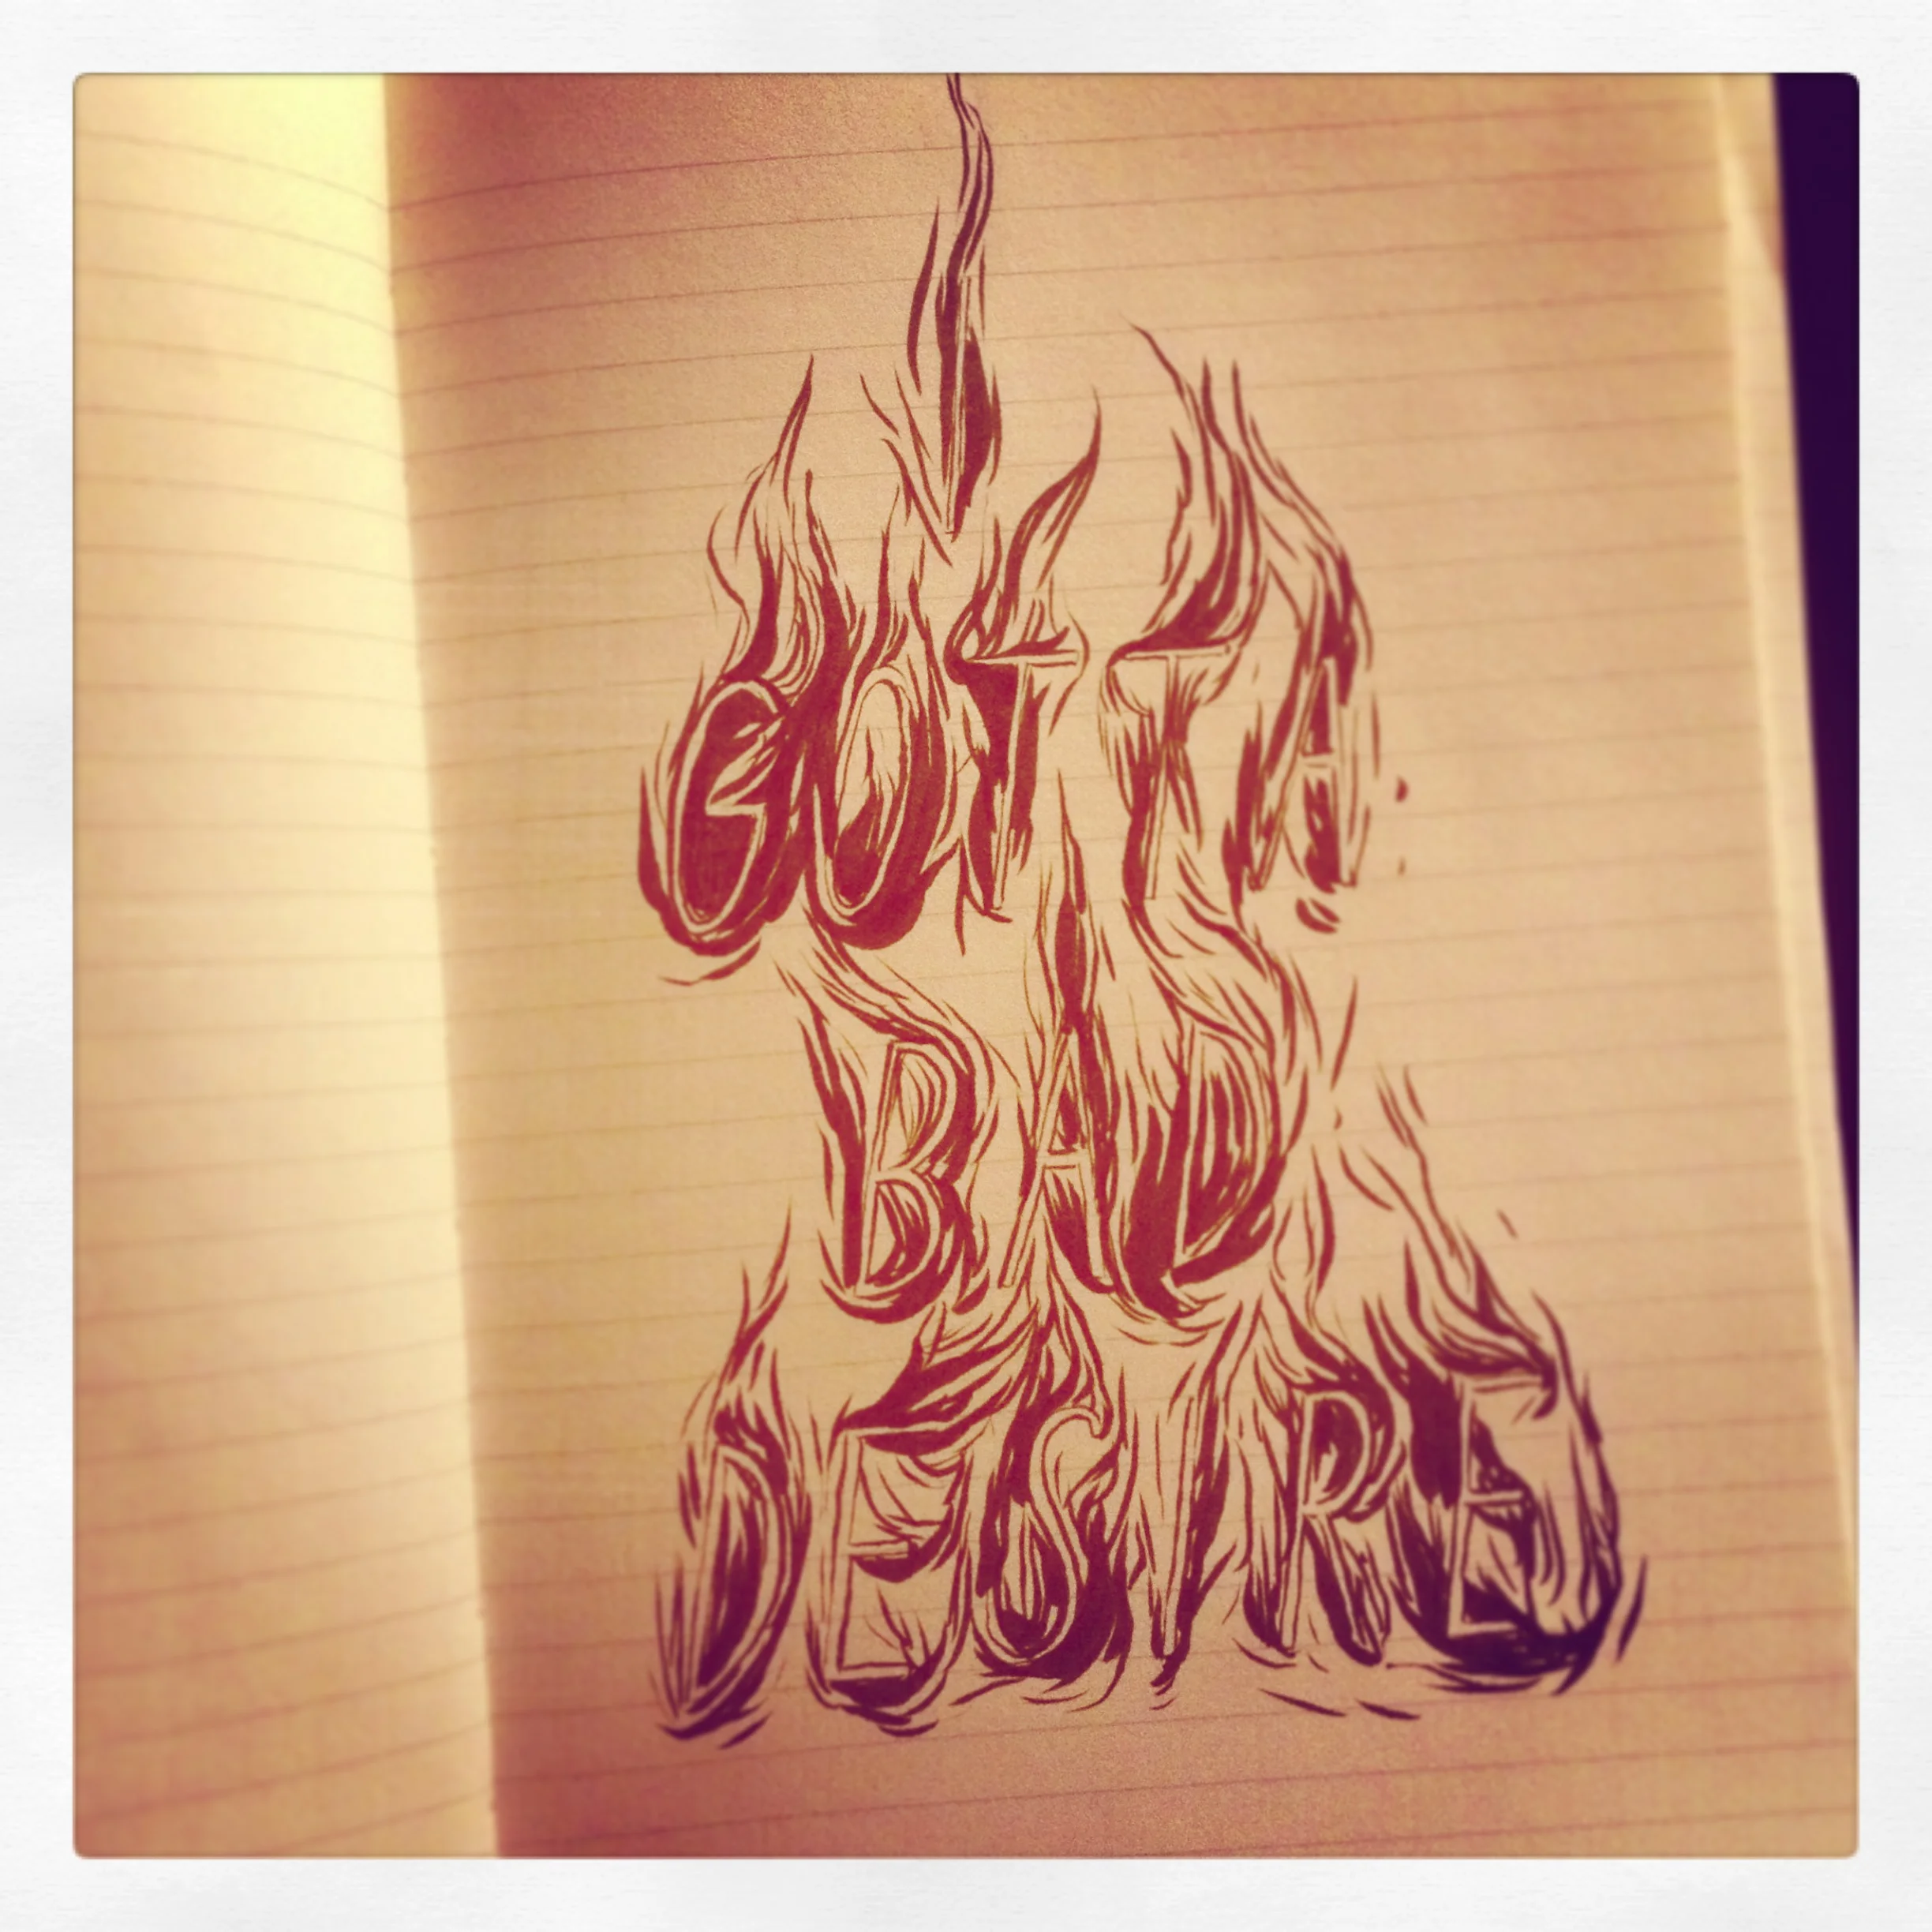 I
GOTTA
BAD
DESIRE